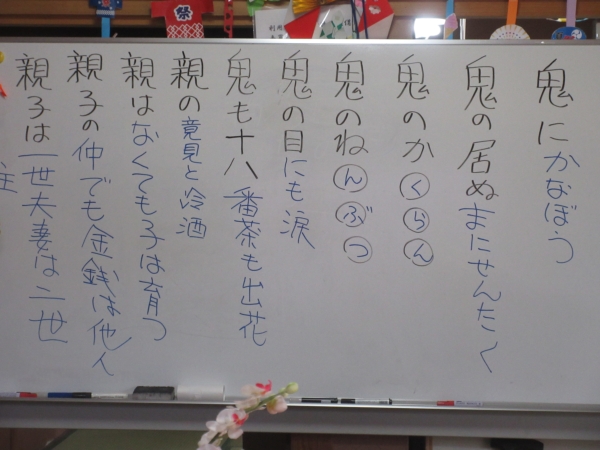 鬼にかなぼう
鬼の居ぬまにせんたく
鬼のかくらん
鬼のねんぶつ
鬼の目にも涙
鬼も十八番茶も出花
親の意見と冷酒
親はなくても子は育つ
親子の仲でも金銭は他人
親子は一世夫妻は二世
主
祭